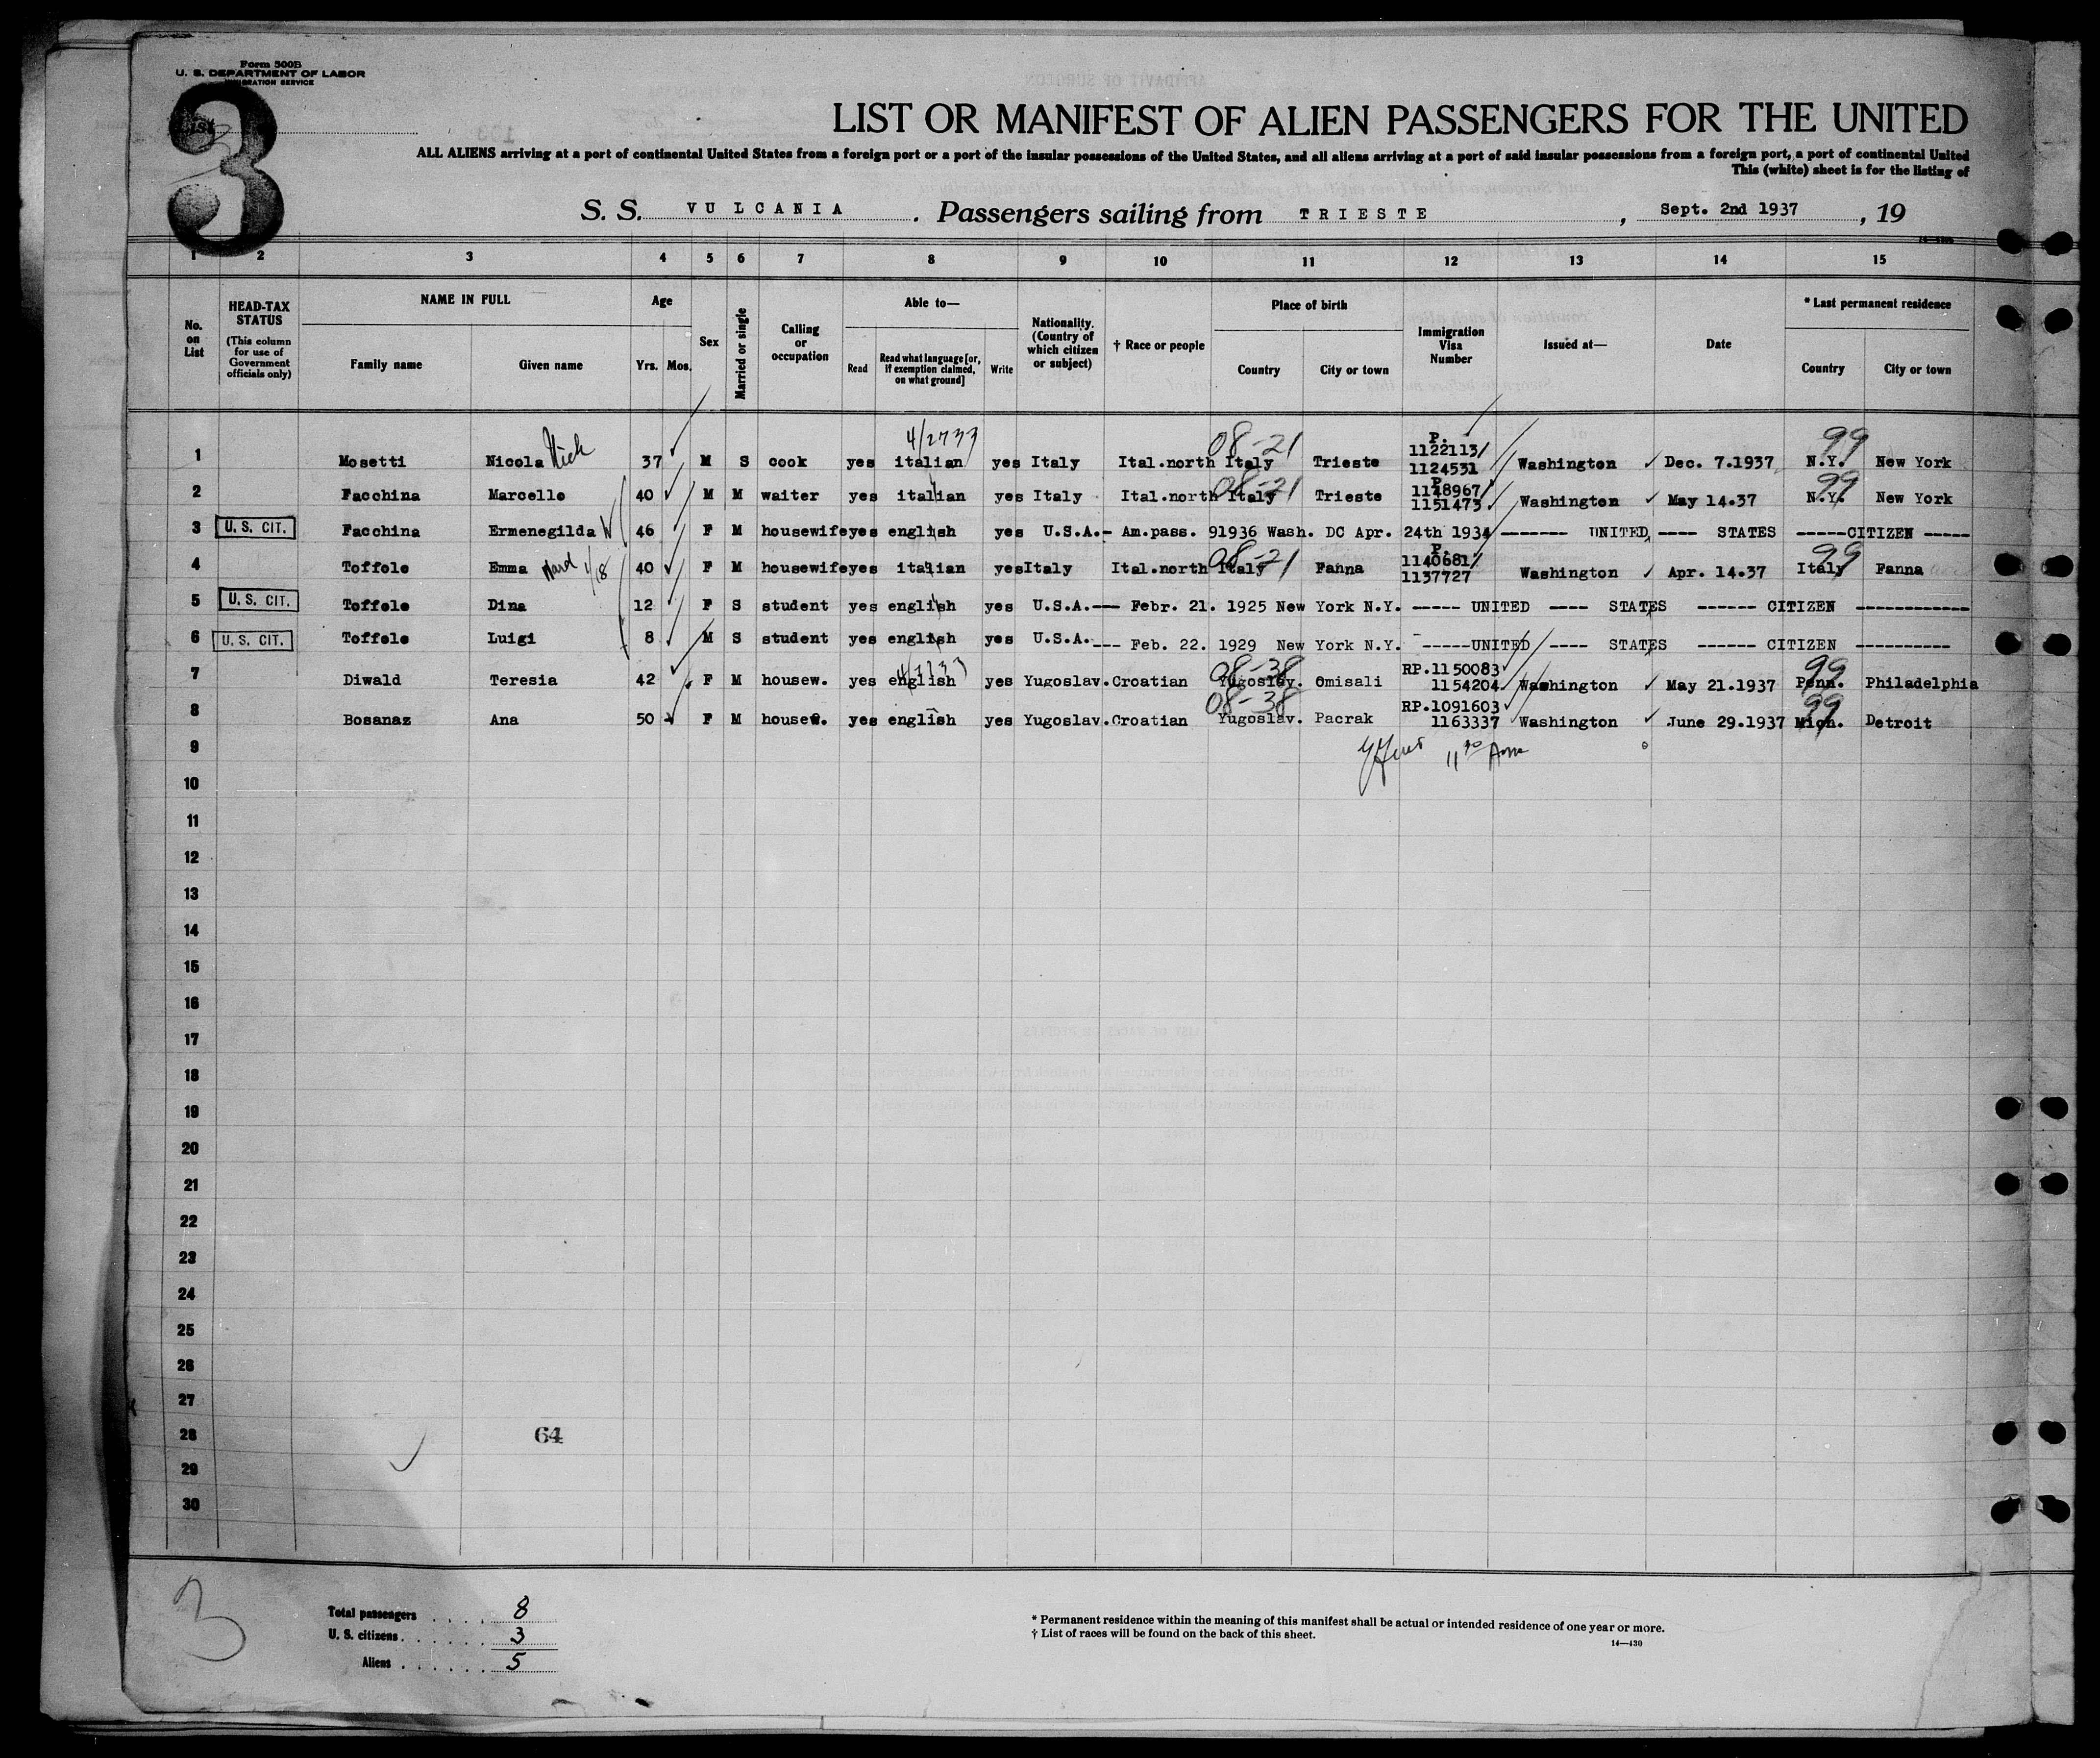 Form 500B
U. S. DEPARTMENT OF LABOR
IMMIGRATION SERVICE
List
3
LIST OR MANIFEST OF ALIEN PASSENGERS FOR THE UNITED
ALL ALIENS arriving at a port of continental United States from a foreign port or a port of the insular possessions of the United States, and all aliens arriving at a port of said insular possessions from a foreign port, a port of continental United
This (white) sheet is for the listing of
S. S. VULCANIA . Passengers sailing from TRIESTE , Sept. 2nd 1937 , 19
1 2 3 4 5 6 7 8 9 10 11 12 13 14 15
No. on List
HEAD-TAX STATUS (This column for use of Government officials only)
NAME IN FULL
Family name Given name
Age
Yrs. Mos.
Sex
Married or single
Calling or occupation
Able to—
Read Read what language [or, if exemption claimed, on what ground] Write
Nationality. (Country of which citizen or subject)
† Race or people
Place of birth
Country City or town
Immigration Visa Number
Issued at—
Date
* Last permanent residence
Country City or town
4/2733 08-21 99
1 Mosetti Nicola Nick 37 M S cook yes italian yes Italy Ital.north Italy Trieste P. 1122113/ 1124531 Washington Dec. 7.1937 N.Y. New York
08-21 99
2 Facchina Marcello 40 M M waiter yes italian yes Italy Ital.north Italy Trieste P. 1148967/ 1151473 Washington May 14.37 N.Y. New York
3 U. S. CIT. Facchina Ermenegilda W 46 F M housewife yes english yes U.S.A.- Am.pass. 91936 Wash. DC Apr. 24th 1934 ------- UNITED ---- STATES -----CITIZEN -----
08-21 99
4 Toffolo Emma 1/18 40 F M housewife yes italian yes Italy Ital.north Italy Fanna P. 1140681/ 1137727 Washington Apr. 14.37 Italy Fanna
5 U. S. CIT. Toffolo Dina 12 F S student yes english yes U.S.A.--- Febr. 21. 1925 New York N.Y. ----- UNITED ---- STATES ------ CITIZEN ------------
6 U. S. CIT. Toffolo Luigi 8 M S student yes english yes U.S.A.--- Feb. 22. 1929 New York N.Y. -----UNITED ---- STATES ------ CITIZEN ----------
08-38 99
7 Diwald Teresia 42 F M housew. yes english yes Yugoslav. Croatian Yugoslav. Omisali RP.1150083 1154204 Washington May 21.1937 Penn. Philadelphia
08-38 99
8 Bosanaz Ana 50 F M housew. yes english yes Yugoslav. Croatian Yugoslav. Pacrak RP.1091603 1163337 Washington June 29.1937 Mich. Detroit
9
10
11
12
13
14
15
16
17
18
19
20
21
22
23
24
25
26
27
28 64
29
30
3
Total passengers . . . . 8
U. S. citizens . . . . . . 3
Aliens . . . . . . . 5
* Permanent residence within the meaning of this manifest shall be actual or intended residence of one year or more.
† List of races will be found on the back of this sheet.
14—430